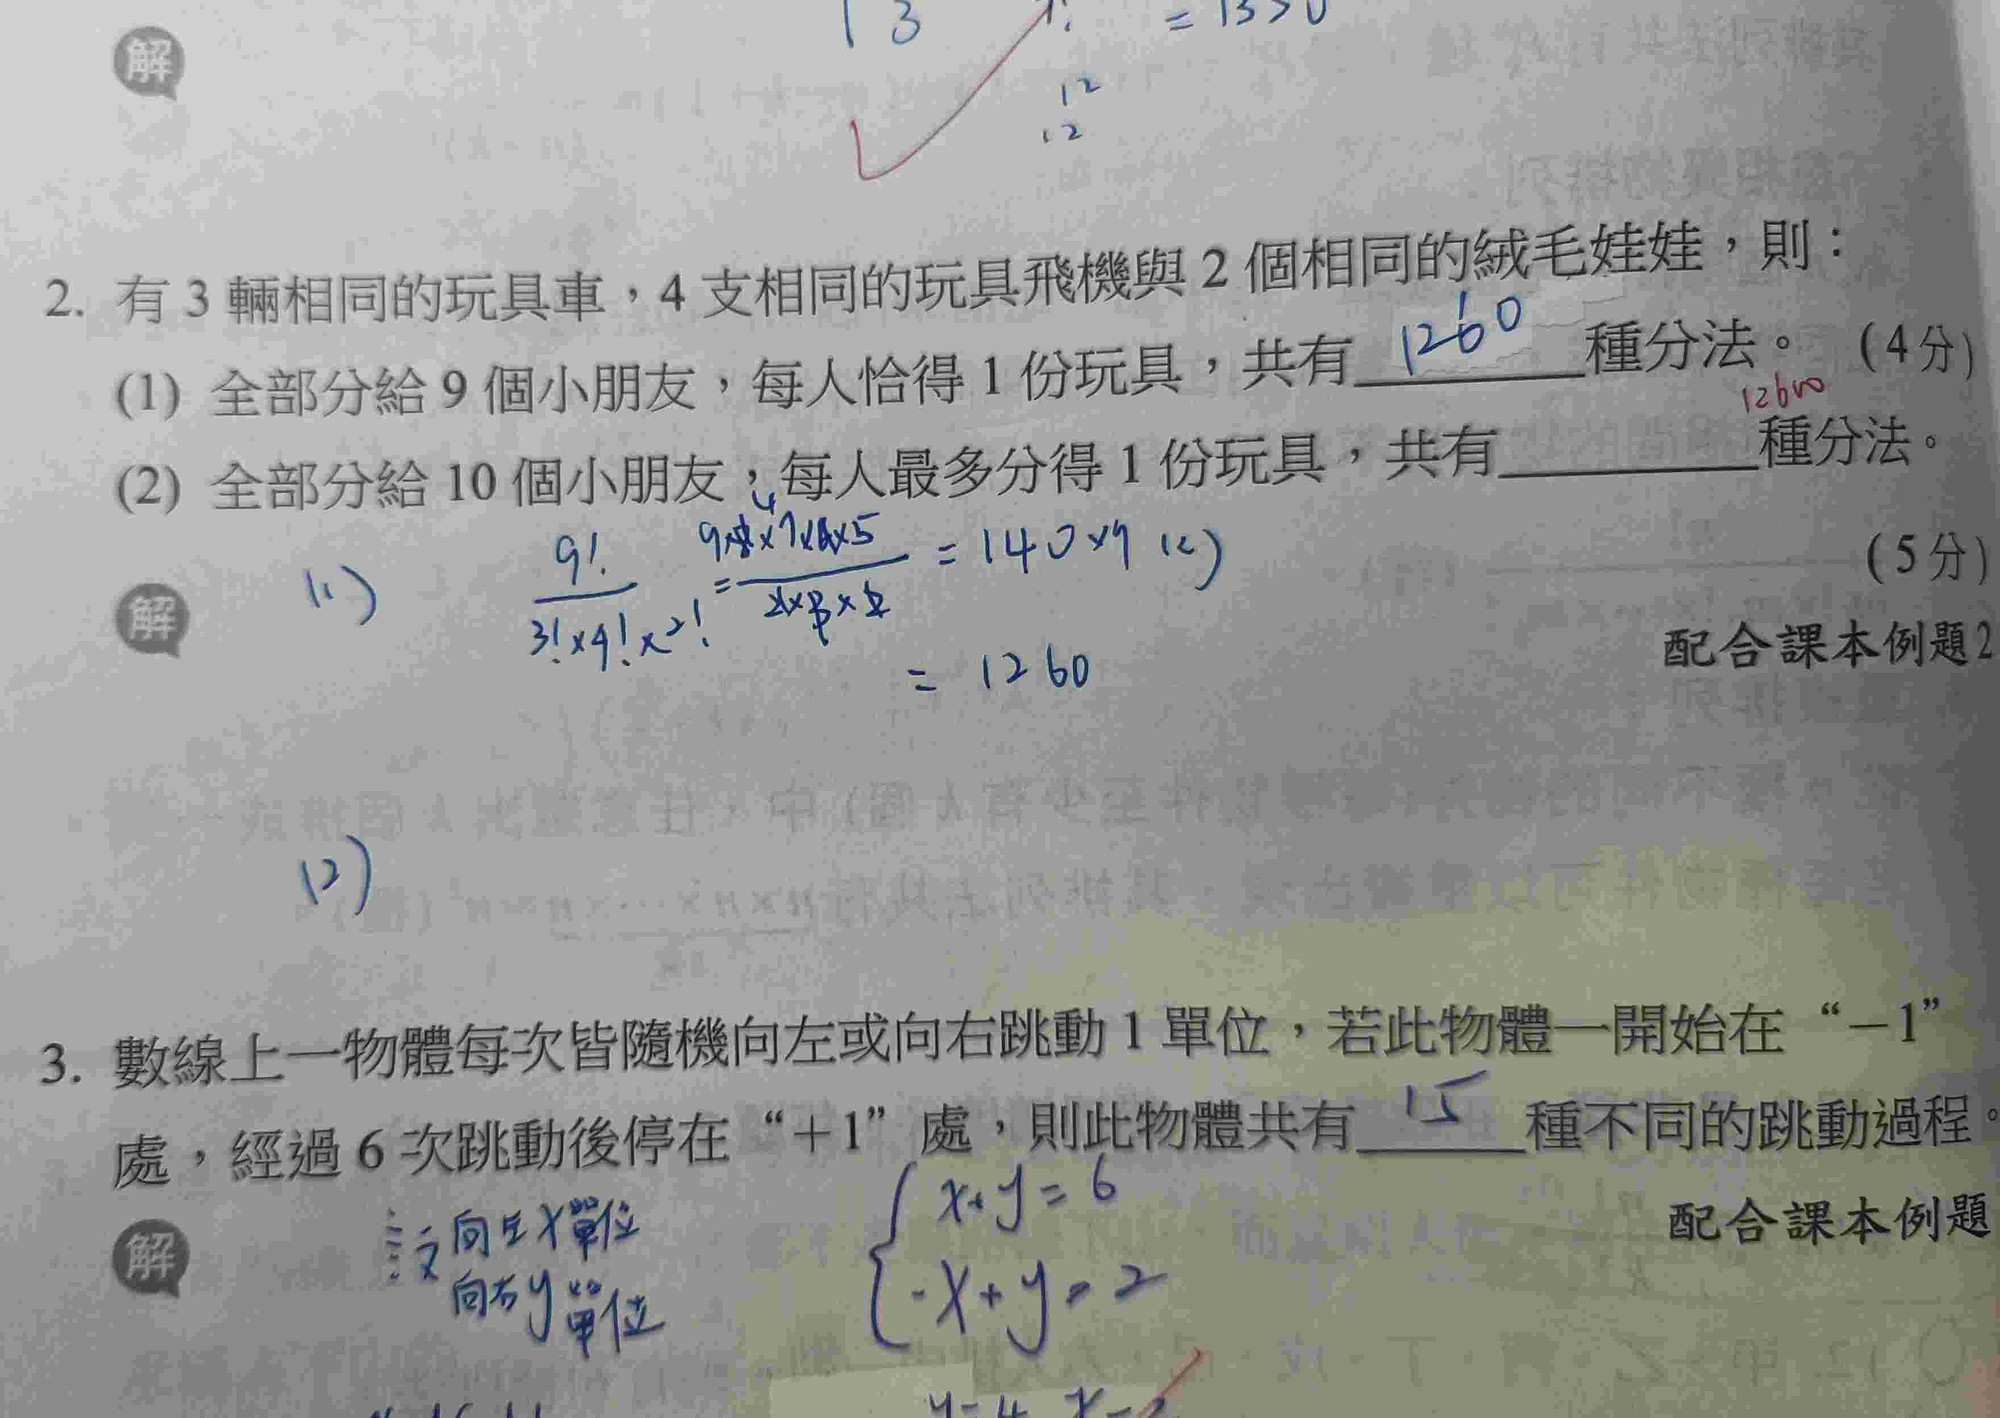 13 = 1330
解
12
12
2. 有 3 輛相同的玩具車，4 支相同的玩具飛機與 2 個相同的絨毛娃娃，則：
(1) 全部分給 9 個小朋友，每人恰得 1 份玩具，共有 1260 種分法。 (4分)
12600
(2) 全部分給 10 個小朋友，每人最多分得 1 份玩具，共有 種分法。
(5分)
解 (1) 9!/3!×4!×2! = 9×8×7×6×5/2×3×2 = 140×9 (2)
4
= 1260
配合課本例題2
(2)
3. 數線上一物體每次皆隨機向左或向右跳動 1 單位，若此物體一開始在“－1”
處，經過 6 次跳動後停在“＋1”處，則此物體共有 15 種不同的跳動過程。
配合課本例題
解 設向左x單位 x+y=6
向右y單位 -x+y=2
y=4 x=2